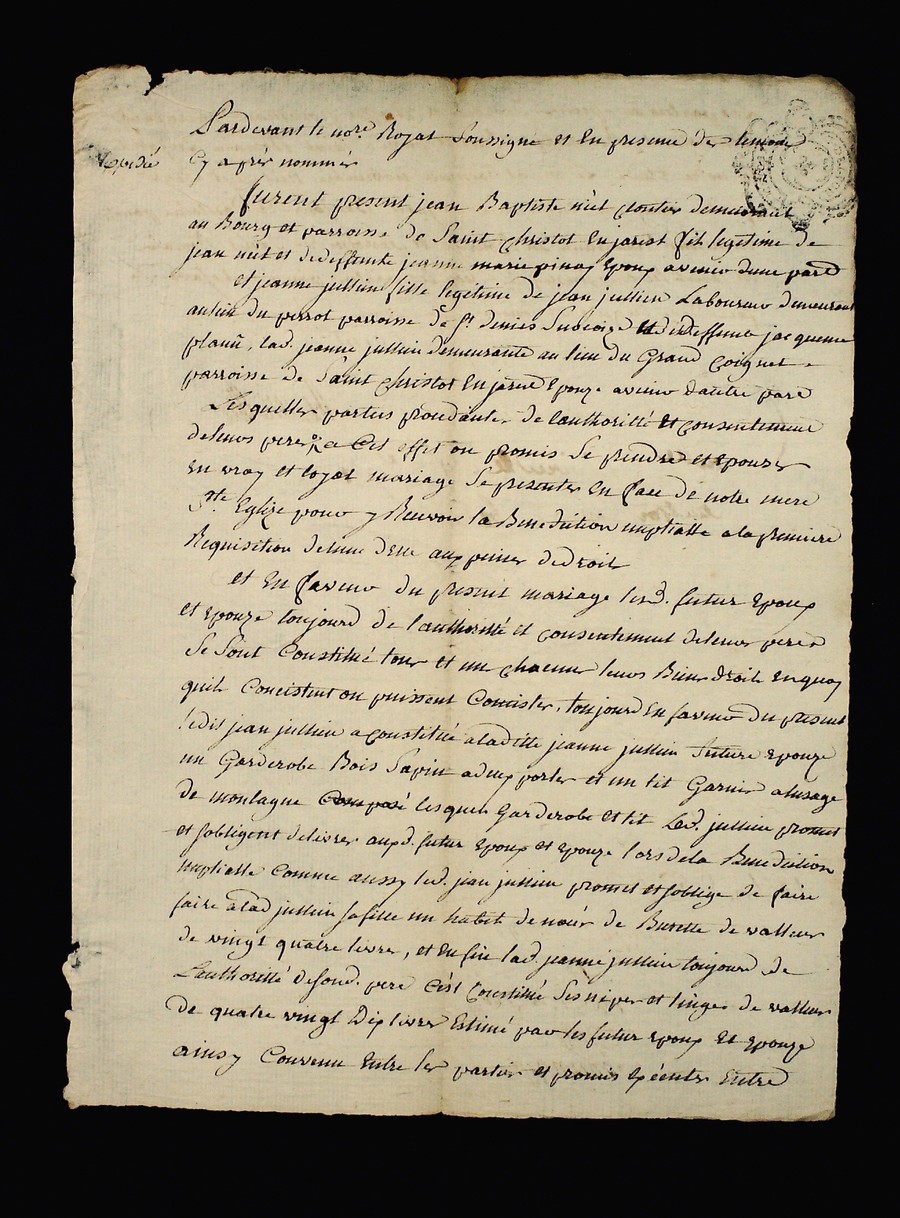 Pardevant le nore Royal Soussigne et En presence des temoins
Expedié
Cy après nommés
furent present jean Baptiste niét cloutier demeurant
au Bourg et parroisse de Saint Christot En jarest fils legitime de
jean niét et de deffunte jeanne marie pinay Epoux avenir dune part
et jeanne jullien fille legitime de jean jullien Laboureur demeurant
au lieu du perrot parroisse de St. denis Sur coize et de deffunte jacqueme
lad. jeanne jullien demeurante au lieu du Grand Coignet
parroisse de Saint Christot En jarest Epouze avenir dautre part
Lesquelles parties procedantes de lauthorité et consentement
de leurs peres a Cet effet on promis Se prendre et Epouzer
En vray et loyal mariage Se presenter En face de notre mere
Ste Eglize pour y Recevoir la Benediction nuptialle a la premiere
Requisition de lune delle aux peines de droit
et En faveur du present mariage lesd. futur Epoux
et Epouze toujourd de lauthorité et consentement de leurs peres
Se Sont Constitué tous et un chacuns leurs Biens droits En quoy
quils Concistent ou puissent Concister, toujourd En faveur du present
ledit jean jullien a constitué a ladite jeanne jullien future Epouze
un Garderobe Bois Sapin a deux portes et un lit Garnis a lusage
de montagne lesquels Garderobe et lit Led. jullien promet
et soblige de livrer auxd. futur Epoux et Epouze lors de la Benediction
nuptialle Comme aussy led. jean jullien promet et soblige de faire
faire a lad jullien sa fille un habit de de Burette de valleur
de vingt quatre livres, et En fin lad. jeanne jullien toujourd de
Lauthorité de sond. pere cest Constitué Ses nipes et linges de valleur
de quatre vingt Dix livres Estimé par les futur Epoux et Epouze
ainsy Convenu Entre les parties et promis Exécuter Entre